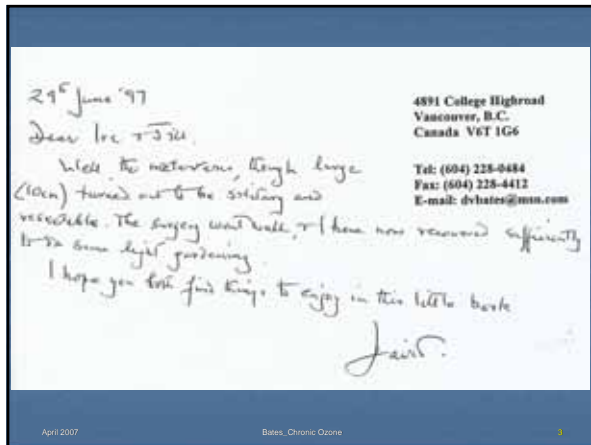 29th June '97
Dear Ira + Jill.
Well, the metastasis, though large
(10cm) turned out to be solitary and
resectable. The surgery went well, + I have now recovered sufficiently
to do some light gardening.
I hope you both find things to enjoy in this little book
David.
4891 College Highroad
Vancouver, B.C.
Canada V6T 1G6
Tel: (604) 228-0484
Fax: (604) 228-4412
E-mail: dvbates@msn.com
April 2007
Bates_Chronic Ozone
3